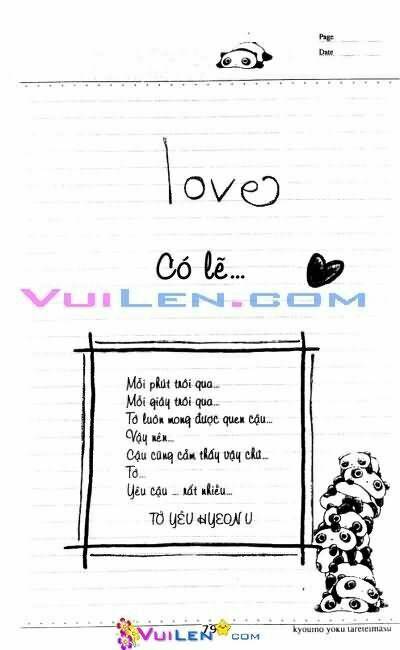 Page
Date
love
Có lẽ...
VuiLen.com
Mỗi phút trôi qua...
Mỗi giây trôi qua...
Tớ luôn mong được quen cậu...
Vậy nên...
Cậu cũng cảm thấy vậy chứ...
Tớ...
Yêu cậu ... rất nhiều...
TỚ YÊU HYEON U
79
VuiLen.com
kyoumo yoku tareteimasu